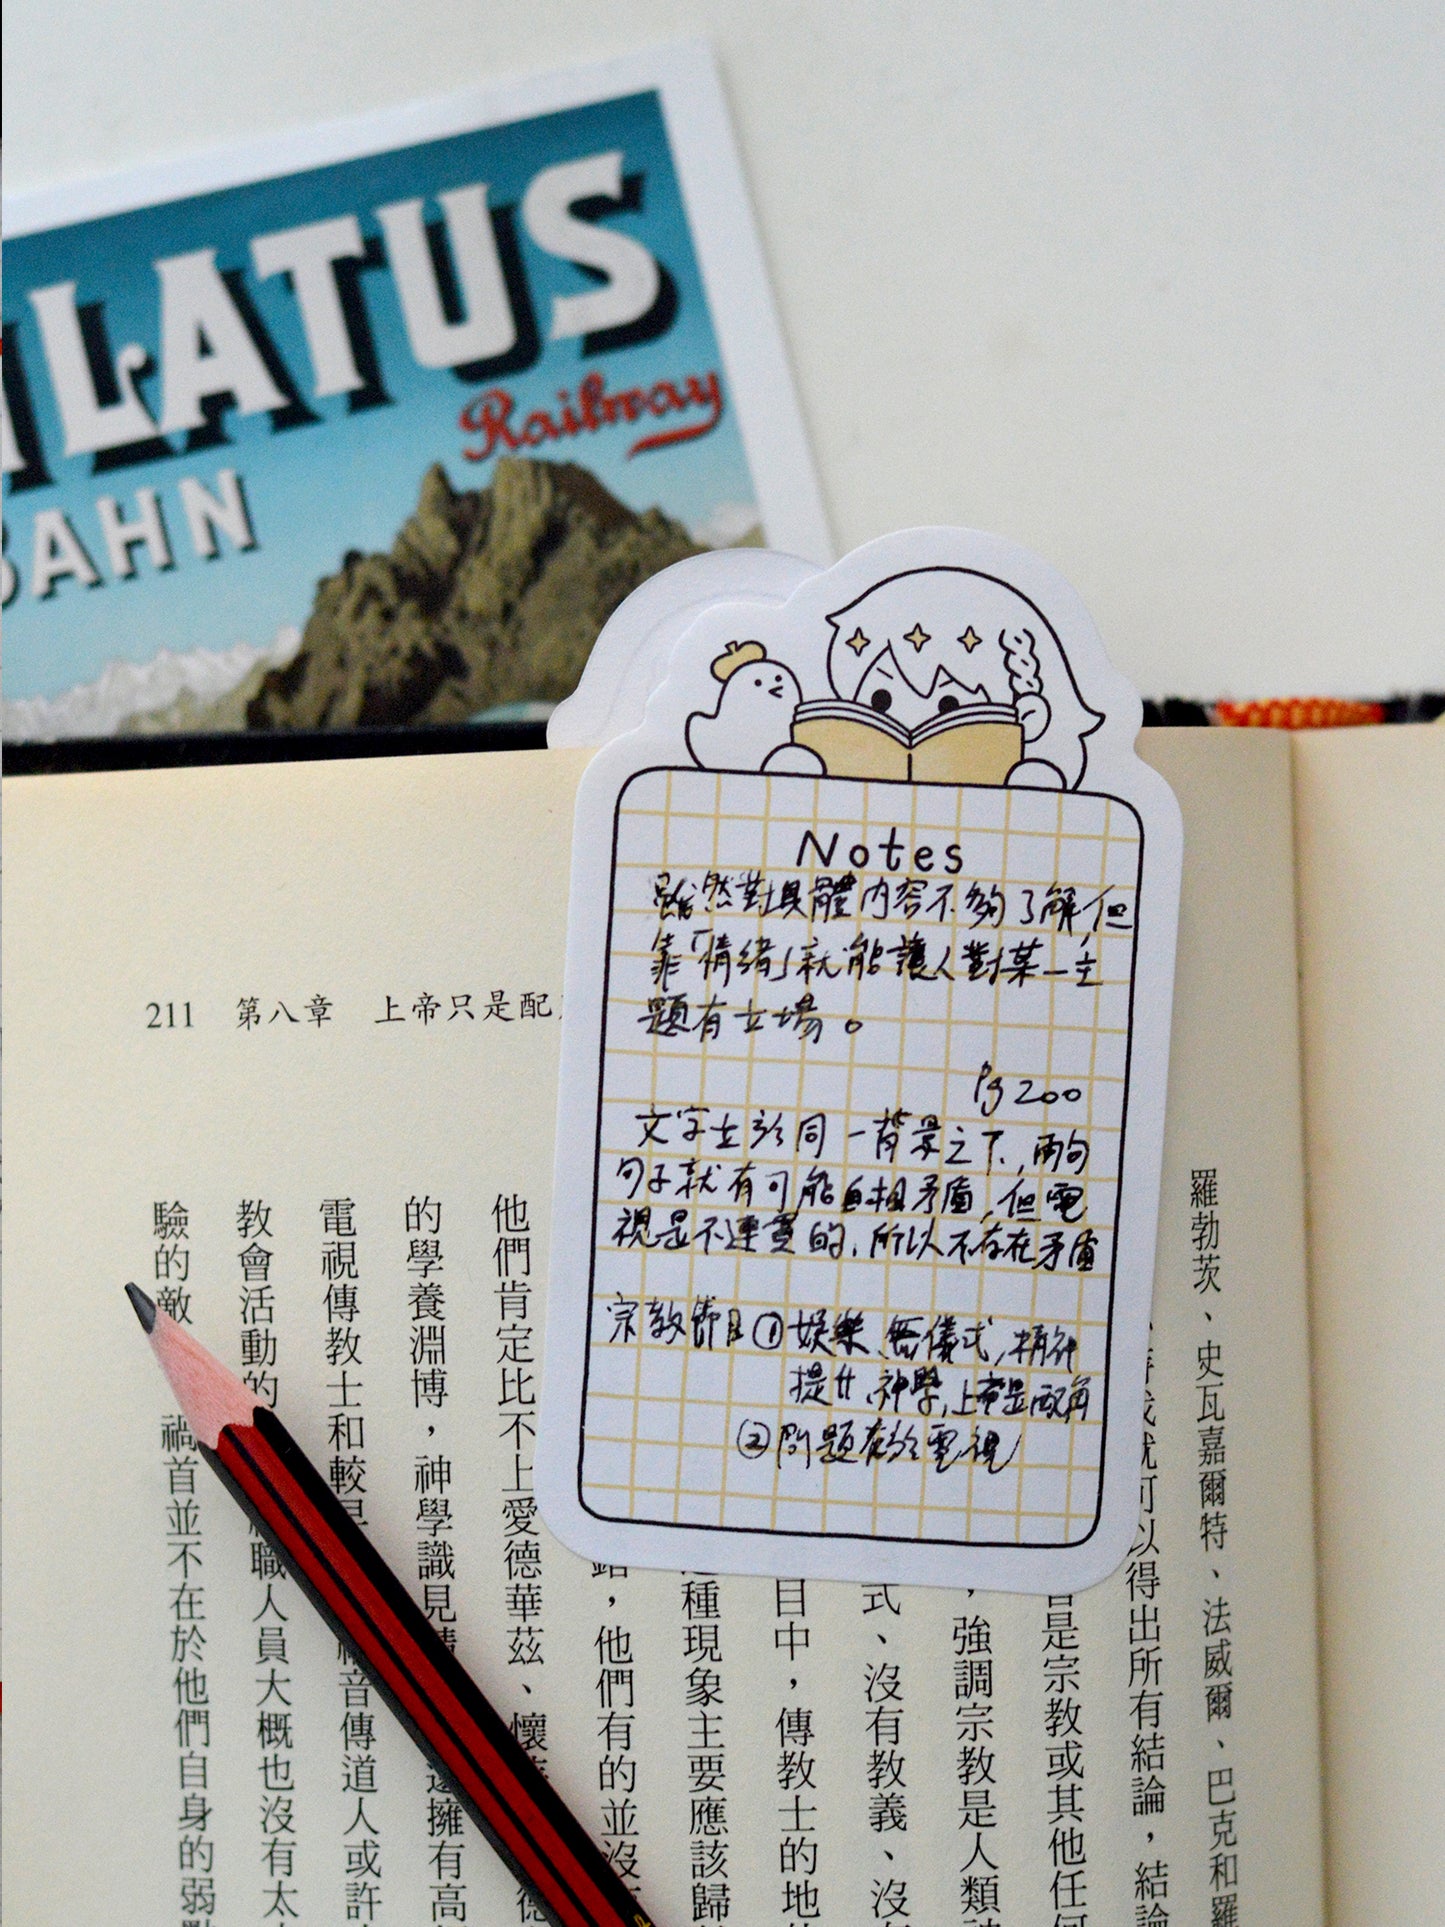 LATUS
Railway
BAHN
Notes
雖然對具體內容不夠了解,但
靠「情緒」就能讓人對某一主
題有立場。
Pg 200
文字在於同一背景之下,兩句
句子就有可能自相矛盾,但電
視是不連貫的,所以不存在矛盾
宗教節目①娛樂、無儀式,精神
提升、神學,上帝是配角
②問題在於電視
211 第八章 上帝只是配
羅勃茨、史瓦嘉爾特、法威爾、巴克和羅
就可以得出所有結論,結論
是宗教或其他任何
,強調宗教是人類
式、沒有教義、沒
目中,傳教士的地
種現象主要應該歸
,他們有的並沒
他們肯定比不上愛德華茲、懷
的學養淵博,神學識見
擁有高
電視傳教士和較早
福音傳道人或許
教會活動的
職人員大概也沒有太
驗的敵
禍首並不在於他們自身的弱點